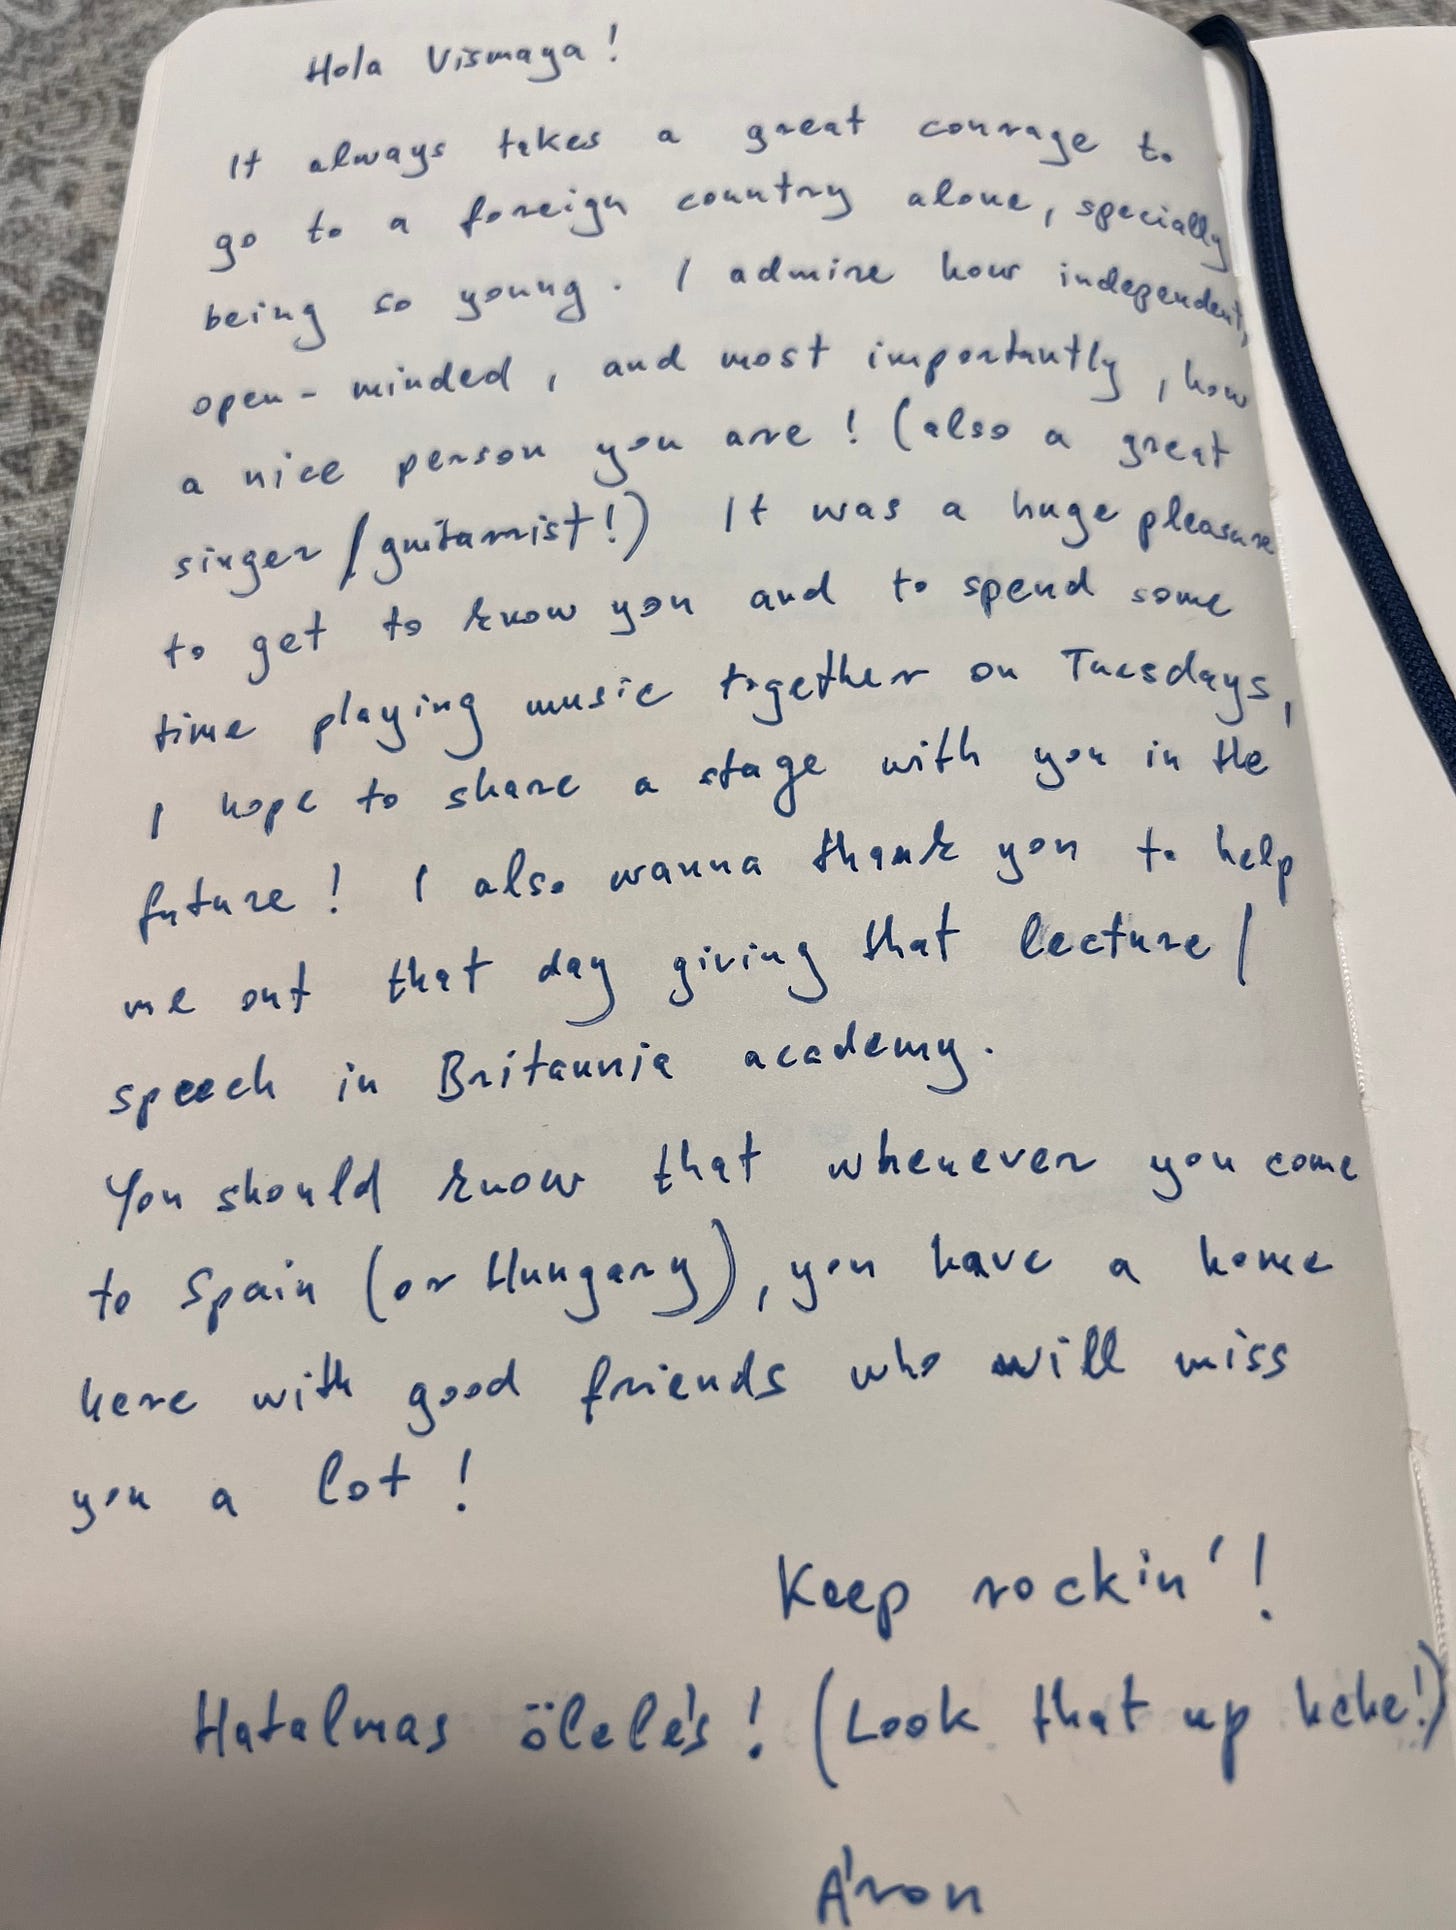 Hola Vismaya!
It always takes a great courage to
go to a foreign country alone, specially
being so young. I admire how independent,
open-minded, and most importantly, how
a nice person you are! (also a great
singer/guitarrist!) It was a huge pleasure
to get to know you and to spend some
time playing music together on Tuesdays,
I hope to share a stage with you in the
future! I also wanna thank you to help
me out that day giving that lecture/
speech in Britannia academy.
You should know that whenever you come
to Spain (or Hungary), you have a home
here with good friends who will miss
you a lot!
Keep rockin'!
Hatalmas ölelés! (Look that up hehe!)
Áron